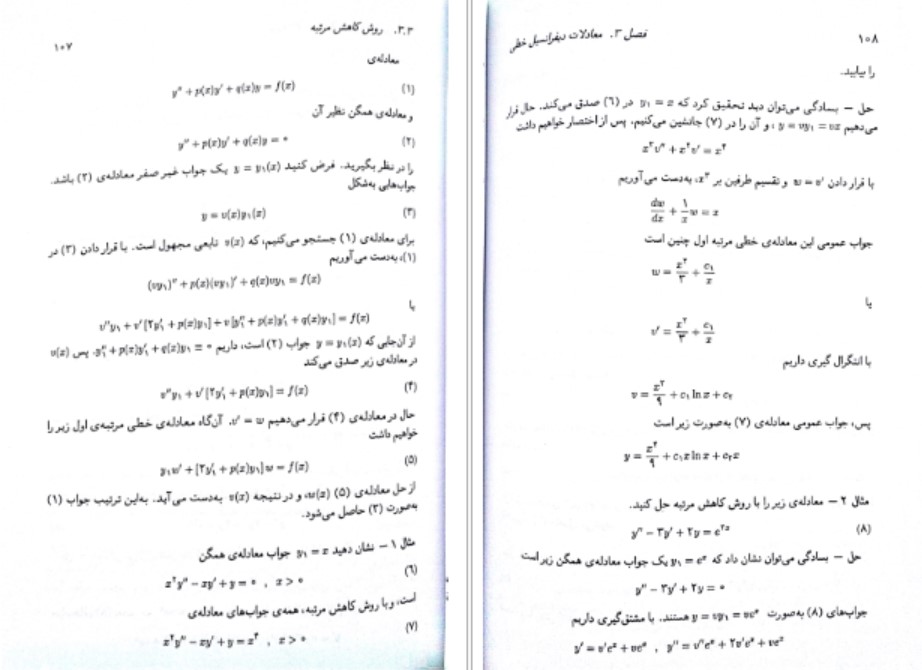 ۳.۳. روش کاهش مرتبه
۱۰۷
معادله‌ی
y″ + p(x)y′ + q(x)y = f(x) (۱)
و معادله‌ی همگن نظیر آن
y″ + p(x)y′ + q(x)y = ۰ (۲)
را در نظر بگیرید. فرض کنید y = y₁(x) یک جواب غیر صفر معادله‌ی (۲) باشد.
جواب‌هایی به‌شکل
y = v(x)y₁(x) (۳)
برای معادله‌ی (۱) جستجو می‌کنیم، که v(x) تابعی مجهول است. با قرار دادن (۳) در
(۱)، به‌دست می‌آوریم
(vy₁)″ + p(x)(vy₁)′ + q(x)vy₁ = f(x)
یا
v″y₁ + v′[۲y′₁ + p(x)y₁] + v[y″₁ + p(x)y′₁ + q(x)y₁] = f(x)
از آن‌جایی که y = y₁(x) جواب (۲) است، داریم y″₁ + p(x)y′₁ + q(x)y₁ = ۰. پس v(x)
در معادله‌ی زیر صدق می‌کند
v″y₁ + v′[۲y′₁ + p(x)y₁] = f(x) (۴)
حال در معادله‌ی (۴) قرار می‌دهیم v′ = w. آن‌گاه معادله‌ی خطی مرتبه‌ی اول زیر را
خواهیم داشت
y₁w′ + [۲y′₁ + p(x)y₁]w = f(x) (۵)
از حل معادله‌ی (۵) w(x)، و در نتیجه v(x) به‌دست می‌آید. به‌این ترتیب جواب (۱)
به‌صورت (۳) حاصل می‌شود.
مثال ۱ – نشان دهید y₁ = x جواب معادله‌ی همگن
x²y″ − xy′ + y = ۰ , x > ۰ (۶)
است، و با روش کاهش مرتبه، همه‌ی جواب‌های معادله‌ی
x²y″ − xy′ + y = x⁴ , x > ۰ (۷)
۱۰۸ فصل ۳. معادلات دیفرانسیل خطی
را بیابید.
حل – بسادگی می‌توان دید تحقیق کرد که y₁ = x در (۶) صدق می‌کند. حال قرار
می‌دهیم y = vy₁ = vx ، و آن را در (۷) جانشین می‌کنیم. پس از اختصار خواهیم داشت
x³v″ + x²v′ = x⁴
با قرار دادن w = v′ و تقسیم طرفین بر x³، به‌دست می‌آوریم
dw/dx + ۱/x w = x
جواب عمومی این معادله‌ی خطی مرتبه اول چنین است
w = x²/۳ + c₁/x
یا
v′ = x²/۳ + c₁/x
با انتگرال گیری داریم
v = x³/۹ + c₁ ln x + c₂
پس، جواب عمومی معادله‌ی (۷) به‌صورت زیر است
y = x⁴/۹ + c₁x ln x + c₂x
مثال ۲ – معادله‌ی زیر را با روش کاهش مرتبه حل کنید.
y″ − ۳y′ + ۲y = e²ˣ (۸)
حل – بسادگی می‌توان نشان داد که y₁ = eˣ یک جواب معادله‌ی همگن زیر است
y″ − ۳y′ + ۲y = ۰
جواب‌های (۸) به‌صورت y = vy₁ = veˣ هستند. با مشتق‌گیری داریم
y′ = v′eˣ + veˣ , y″ = v″eˣ + ۲v′eˣ + veˣ